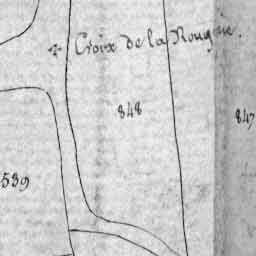 Croix de la Rougerie.
848
847
539